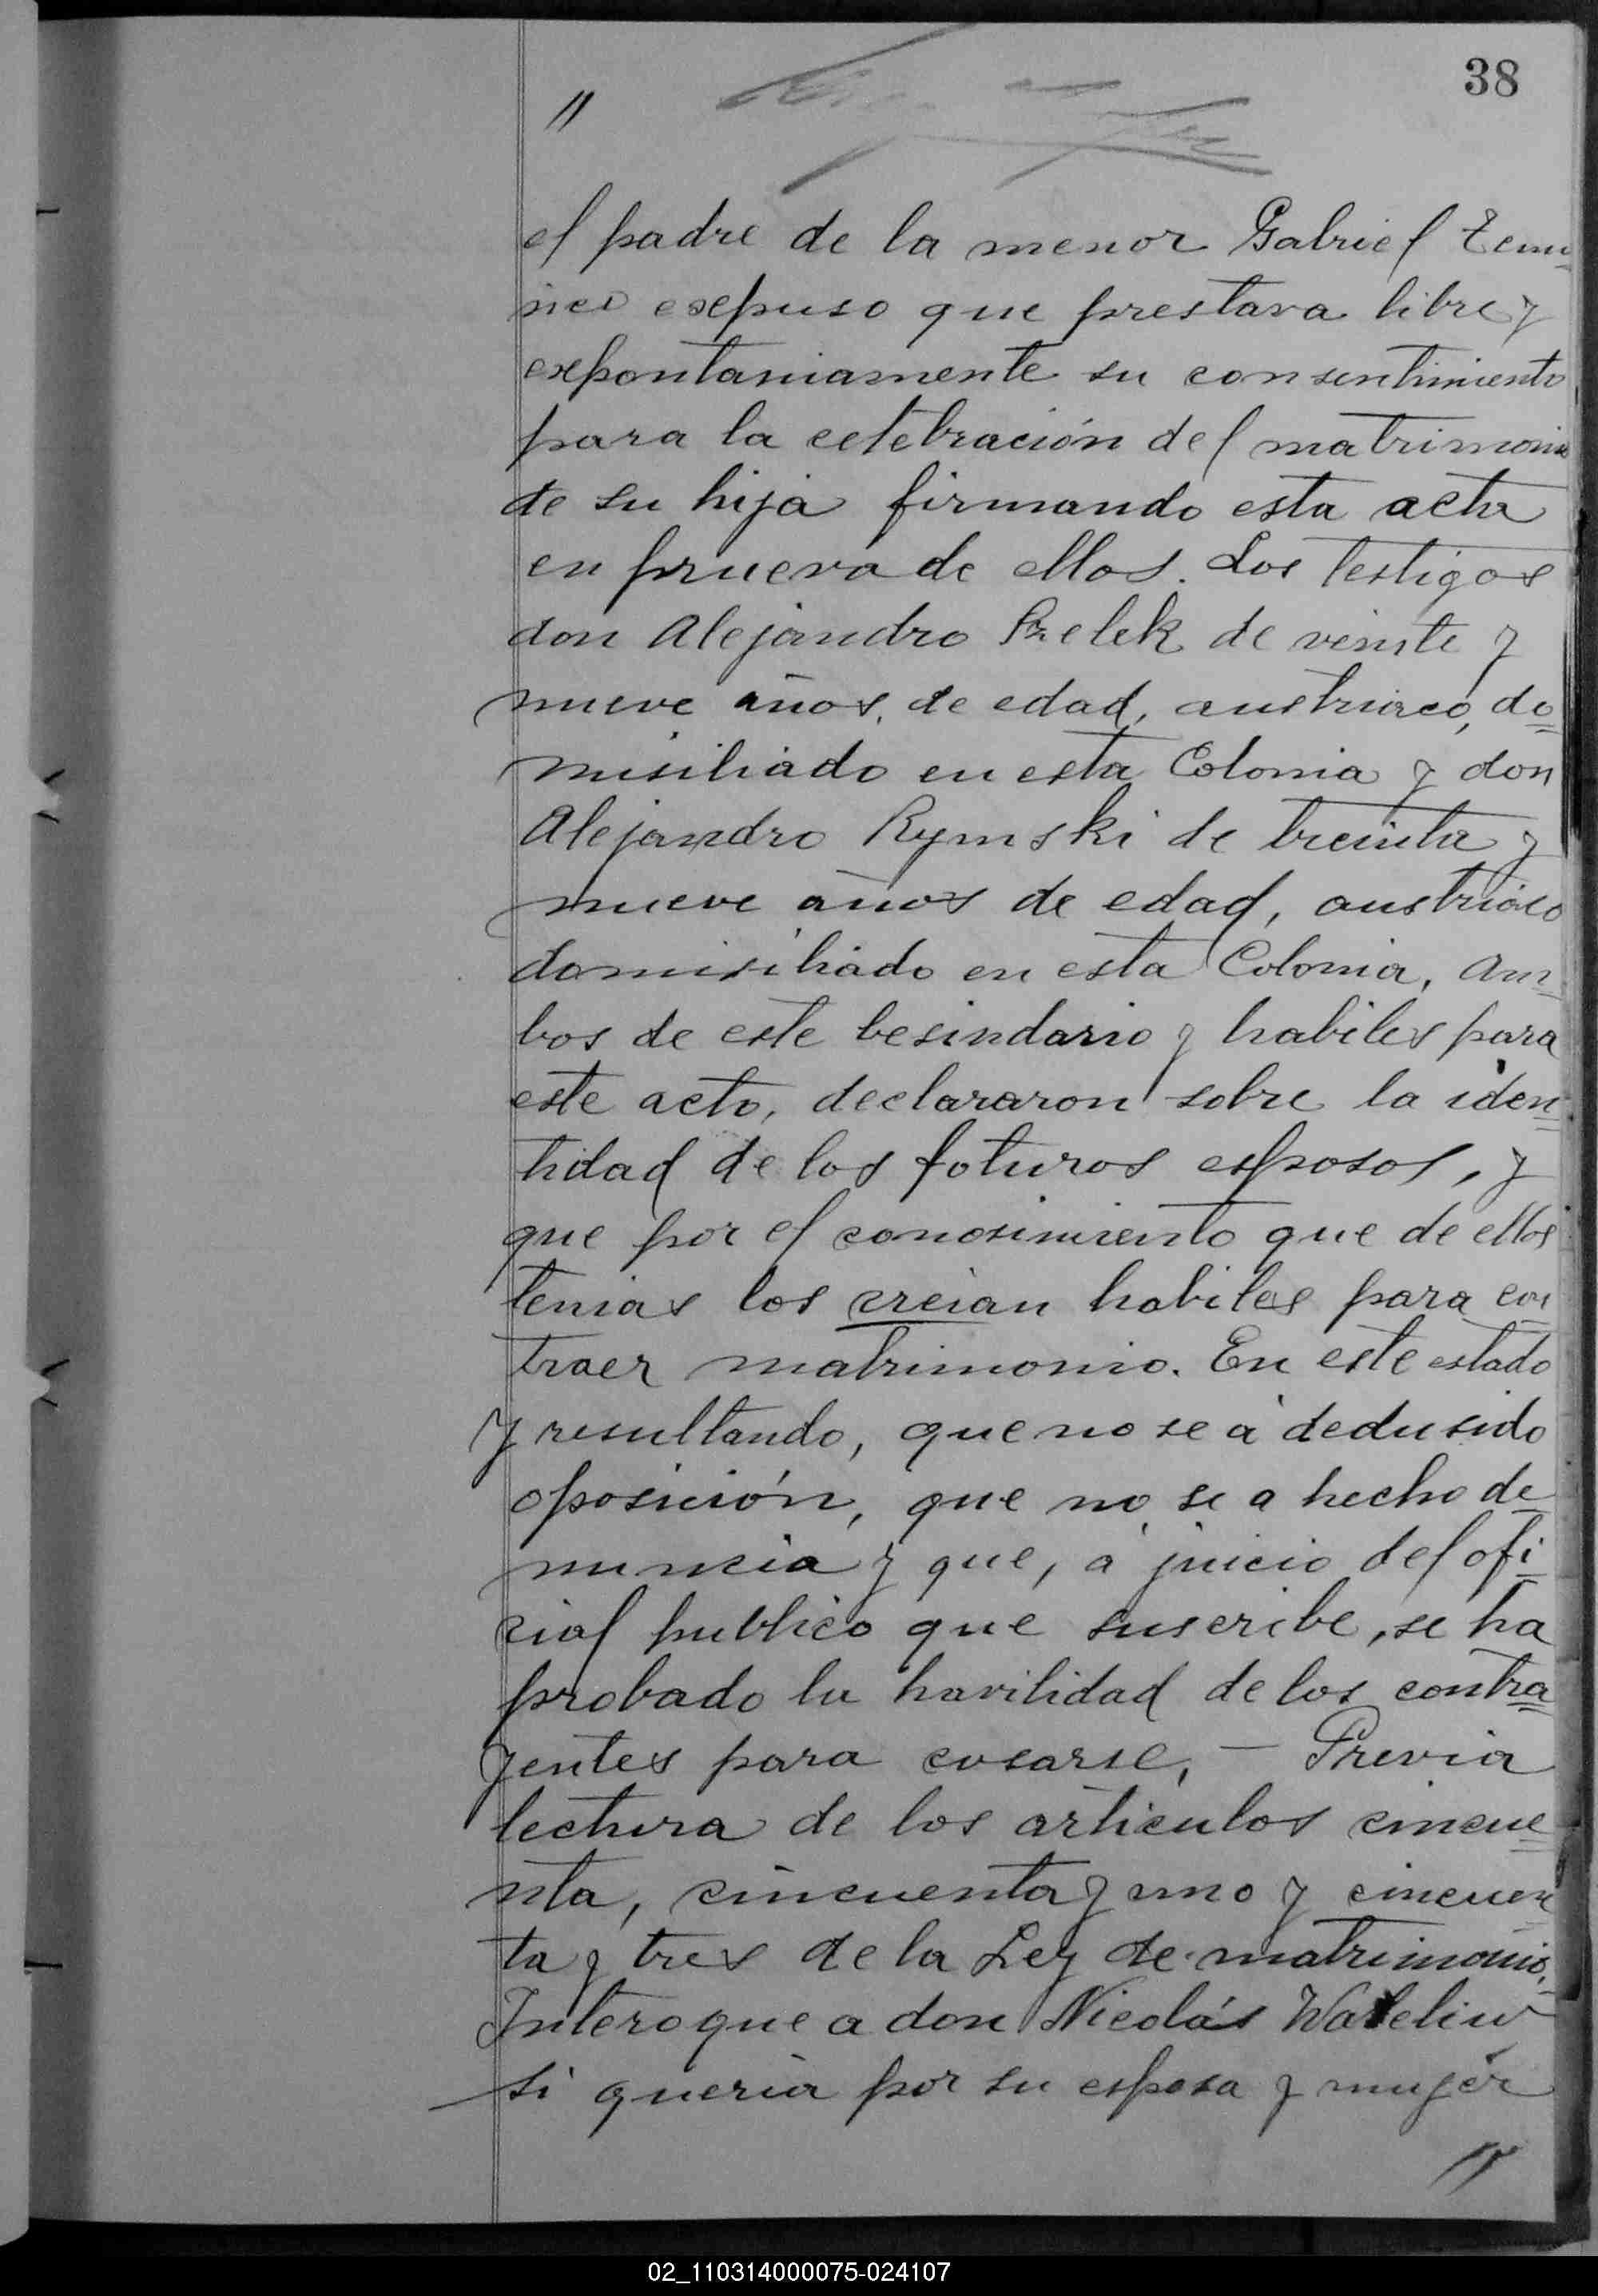 38
"
el padre de la menor Gabriel
exepuso que prestava libre y
expontaniamente su consentimiento
para la celebración del matrimonio
de su hija firmando esta acta
en prueva de ellos. Los testigos
don Alejandro de veinte y
nueve años, de edad, austriaco, do=
misiliado en esta Colonia y don
Alejandro Rymski de treinta y
nueve años de edad, austriaco
domisiliado en esta Colonia, Am=
bos de este besindario y habiles para
este acto, declararon sobre la iden=
tidad de los foturos esposos, y
que por el conosimiento que de ellos
tenias los creian habiles para con
traer matrimonio. En este estado
y resultando, que no se à dedusido
oposición, que no se a hecho de=
nuncia y que, á juicio del ofi=
cial publico que suscribe, se ha
probado la havilidad de los contra=
yentes para casarse, — Previa
lectura de los articulos cincue=
nta, cincuenta y uno y cincuen
ta y tres de la Ley de matrimonio,
Interoque a don Nicolás
si queria por su esposa y mujér
"
02_110314000075-024107